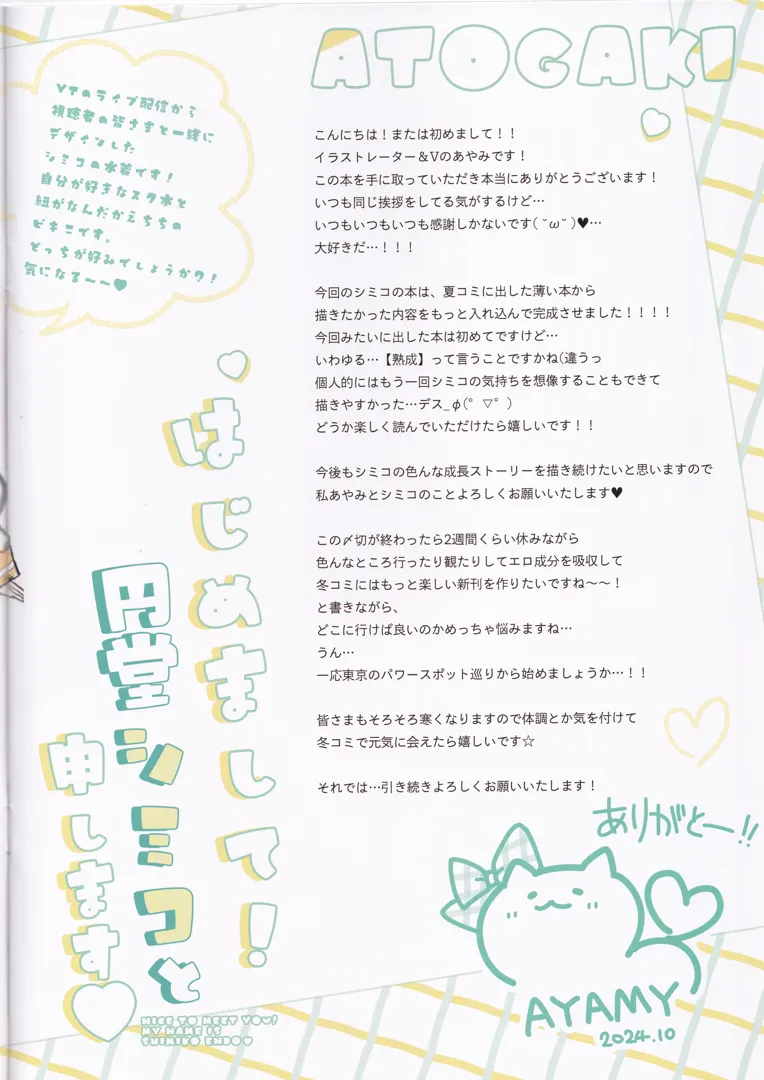 ATOGAKI
VTのライブ配信から
視聴者の皆さまと一緒に
デザインした
シミコの水着です！
自分が好きなスク水と
紐がなんだかえちちの
ビキニです。
どっちが好みでしょうか？！
気になる〜〜♥
こんにちは！または初めまして！！
イラストレーター＆Vのあやみです！
この本を手に取っていただき本当にありがとうございます！
いつも同じ挨拶をしてる気がするけど…
いつもいつもいつも感謝しかないです( ˘ω˘ )♥…
大好きだ…！！！
今回のシミコの本は、夏コミに出した薄い本から
描きたかった内容をもっと入れ込んで完成させました！！！！
今回みたいに出した本は初めてですけど…
いわゆる…【熟成】って言うことですかね(違うっ
個人的にはもう一回シミコの気持ちを想像することもできて
描きやすかった…デス_φ(ﾟ▽ﾟ)
どうか楽しく読んでいただけたら嬉しいです！！
今後もシミコの色んな成長ストーリーを描き続けたいと思いますので
私あやみとシミコのことよろしくお願いいたします♥
この〆切が終わったら2週間くらい休みながら
色んなところ行ったり観たりしてエロ成分を吸収して
冬コミにはもっと楽しい新刊を作りたいですね〜〜！
と書きながら、
どこに行けば良いのかめっちゃ悩みますね…
うん…
一応東京のパワースポット巡りから始めましょうか…！！
皆さまもそろそろ寒くなりますので体調とか気を付けて
冬コミで元気に会えたら嬉しいです☆
それでは…引き続きよろしくお願いいたします！
はじめまして！
円堂シミコと
申します♥
NICE TO MEET YOU!
MY NAME IS
SHIMIKO ENDO♥
ありがとー!!
AYAMY
2024.10